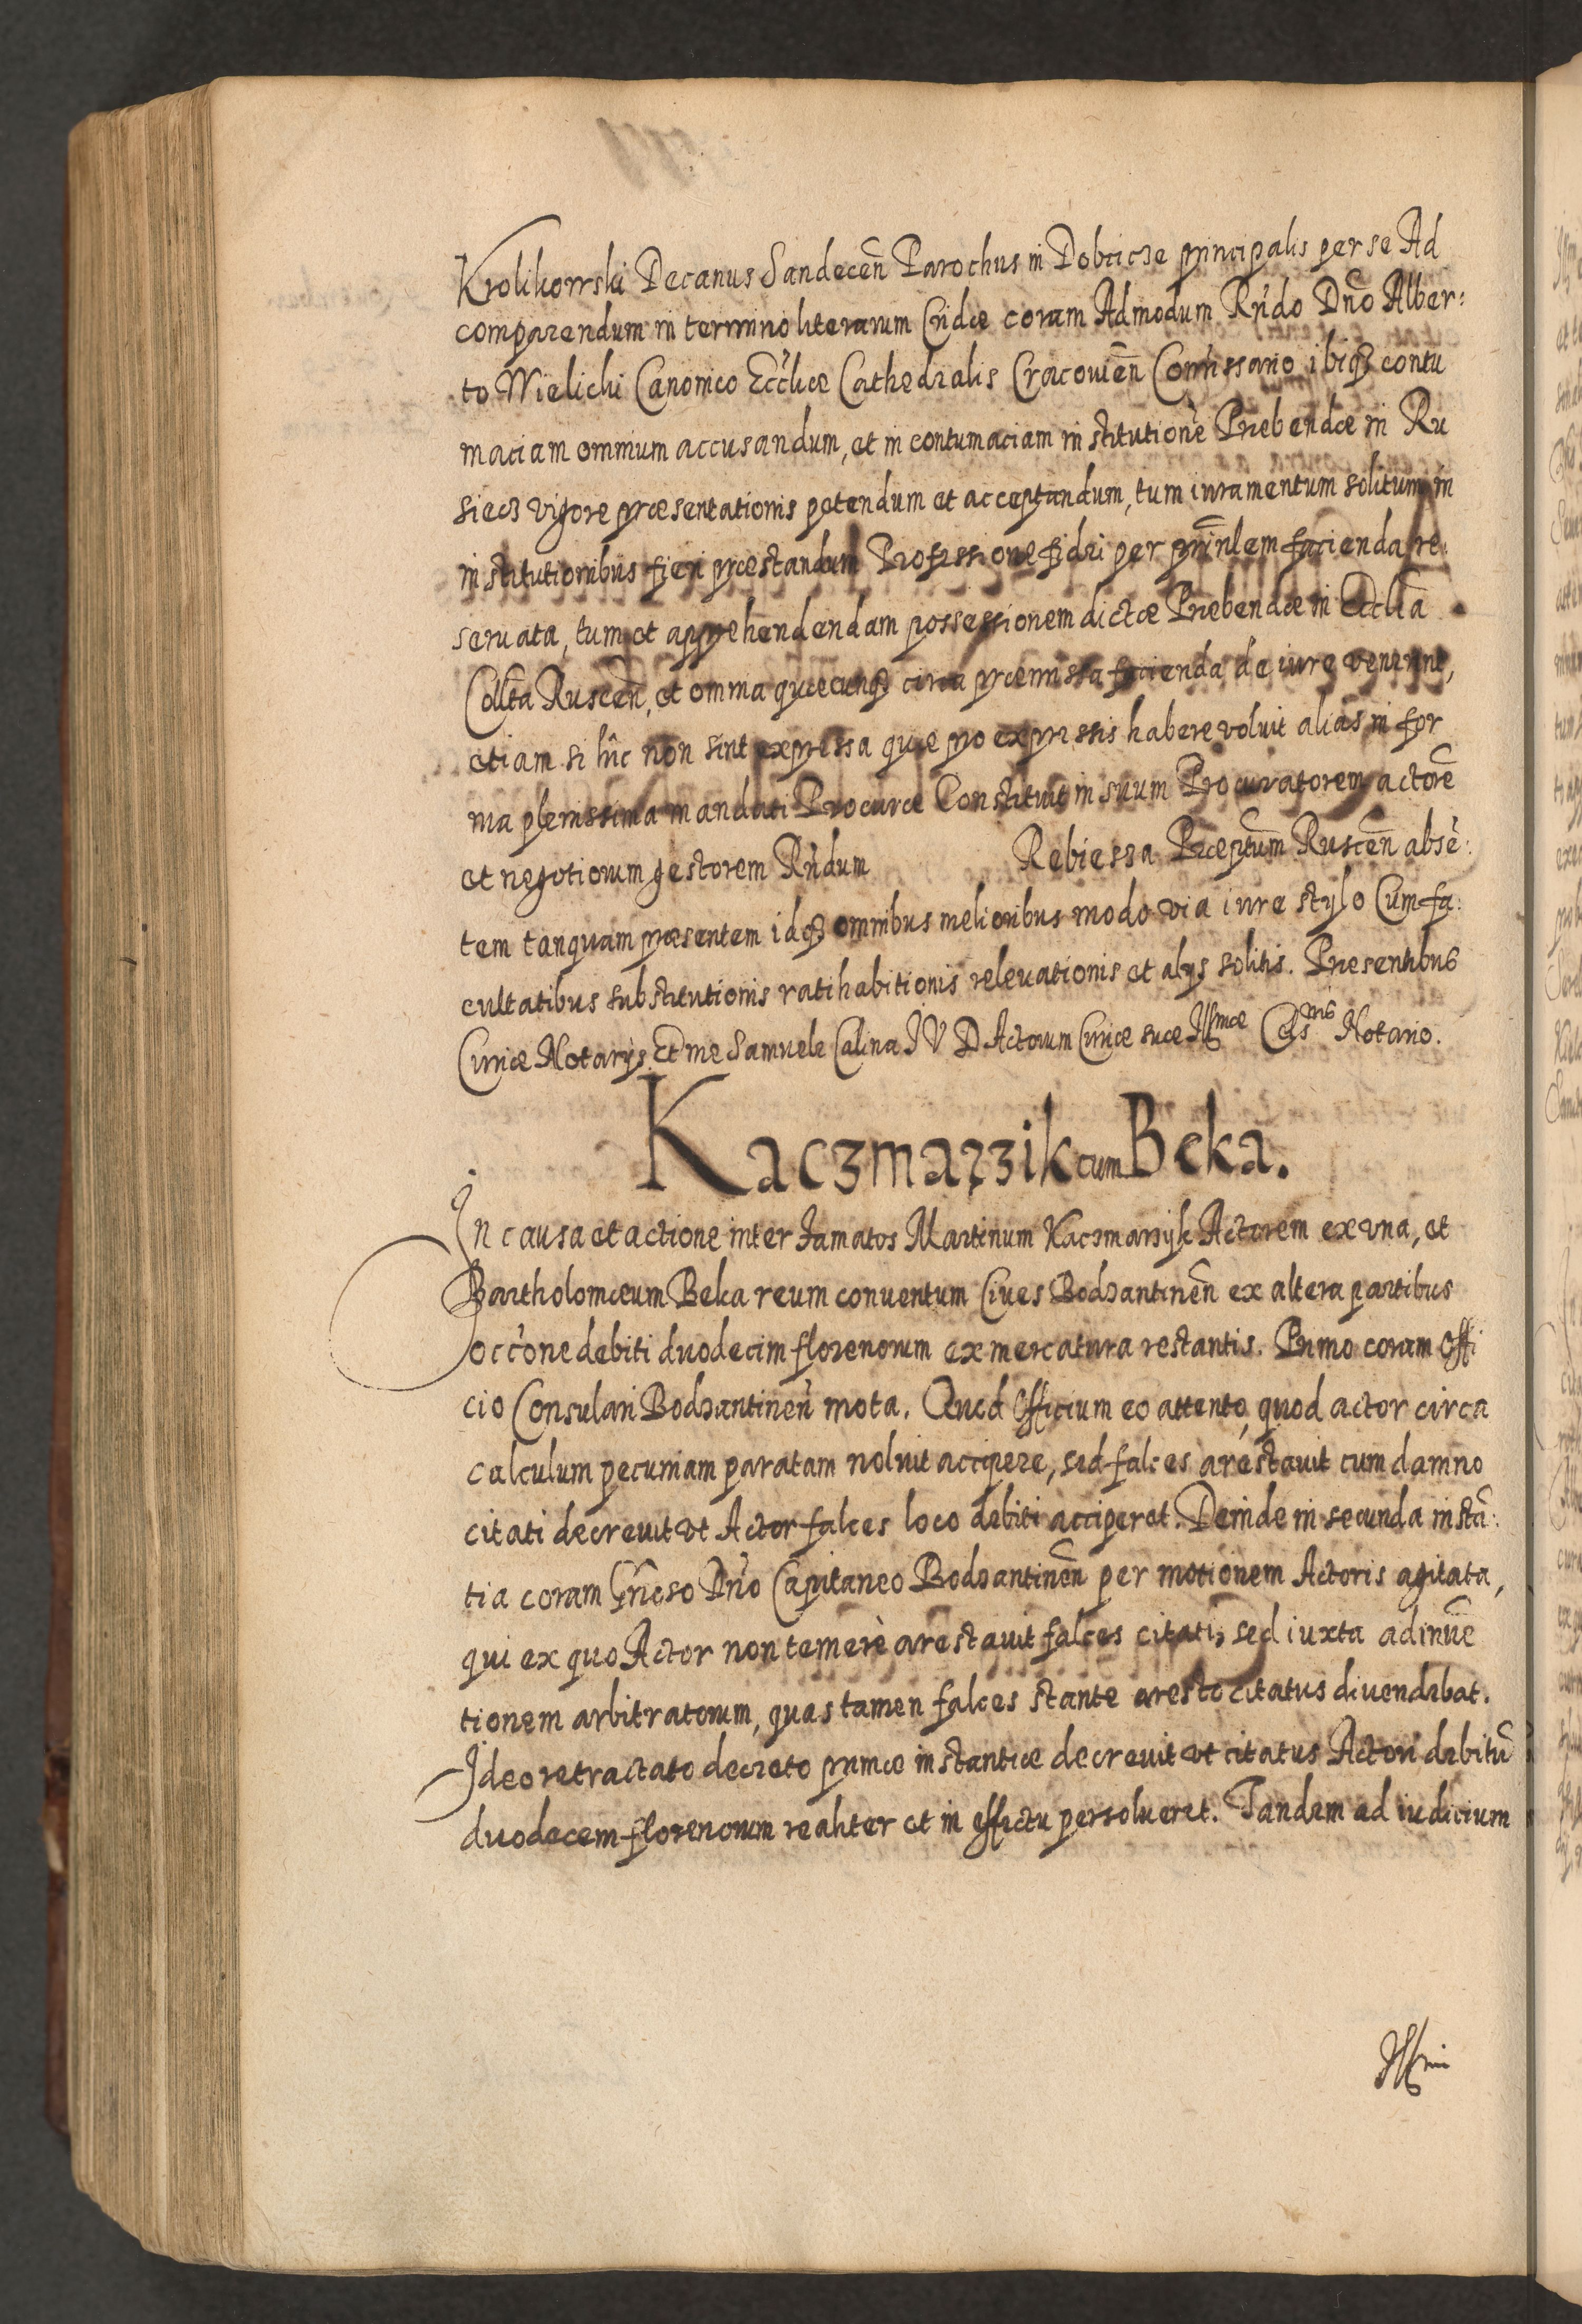 Krolikowski Decanus Sandecen̄ Parochus in Dobczicze principalis per se Ad
comparendum in termino literarum Cridæ coram Admodum Rńdo Dńo Alber:
to Wielicki Canonico Eccĺiæ Cathedralis Cracouien̄ Com̄issario ibiq3 contu
maciam omnium accusandum, et in contumaciam institutionē Præbendæ in Ru
siecz vigore præsentationis petendum et acceptandum, tum iuramentum solitum in
institutionibus fieri præstandum Professione fidei per prin̄lem facienda re:
seruata, tum et apprehendendam possessionem dictæ Præbendæ in Eccĺia
Coll̄ta Ruscen̄, et omnia quæcunq3 circa præmissa facienda de iure venerint,
etiam si hîc non sint expressa quæ pro expressis habere voluit alias in for
ma plenissima mandati Procuræ Constituit in suum Procuratorem actorē
et negotiorum gestorem Rńdum Rebiessa Præptum̄ Ruscen̄ absē:
tem tanquam præsentem idq3 omnibus melioribus modo via iure stylo Cum fa:
cultatibus substitutionis ratihabitionis releuationis et alijs solitis. Præsentibus
Curiæ Notarijs. Et me Samuele Calina I V D Actorum Curiæ suæ Illmæ Celsnis Notario.
Kaczmarzik cum Beka.
In causa et actione inter famatos Martinum Kaczmarzyk Actorem ex vna, et
Bartholomæum Beka reum conuentum Ciues Bodzantinen̄ ex altera partibus
occone debiti duodecim florenorum ex mercatura restantis. Primo coram Offi
cio Consulari Bodzantinen̄ mota. Quod Officium eo attento, quod actor circa
calculum pecuniam paratam noluit accipere, sed falces arestauit cum damno
citati decreuit vt Actor falces loco debiti acciperet. Deinde in secunda instā:
tia coram Gńoso Dńo Capitaneo Bodzantinen̄ per motionem Actoris agitata,
qui ex quo Actor non temerè arestauit falces citati, sed iuxta adinuē
tionem arbitratorum, quas tamen falces stante aresto citatus diuendebat.
Ideo retractato decreto primæ instantiæ decreuit vt citatus Actori debitū
duodecem florenorum realiter et in effectu persolueret. Tandem ad iudicium
Illmi